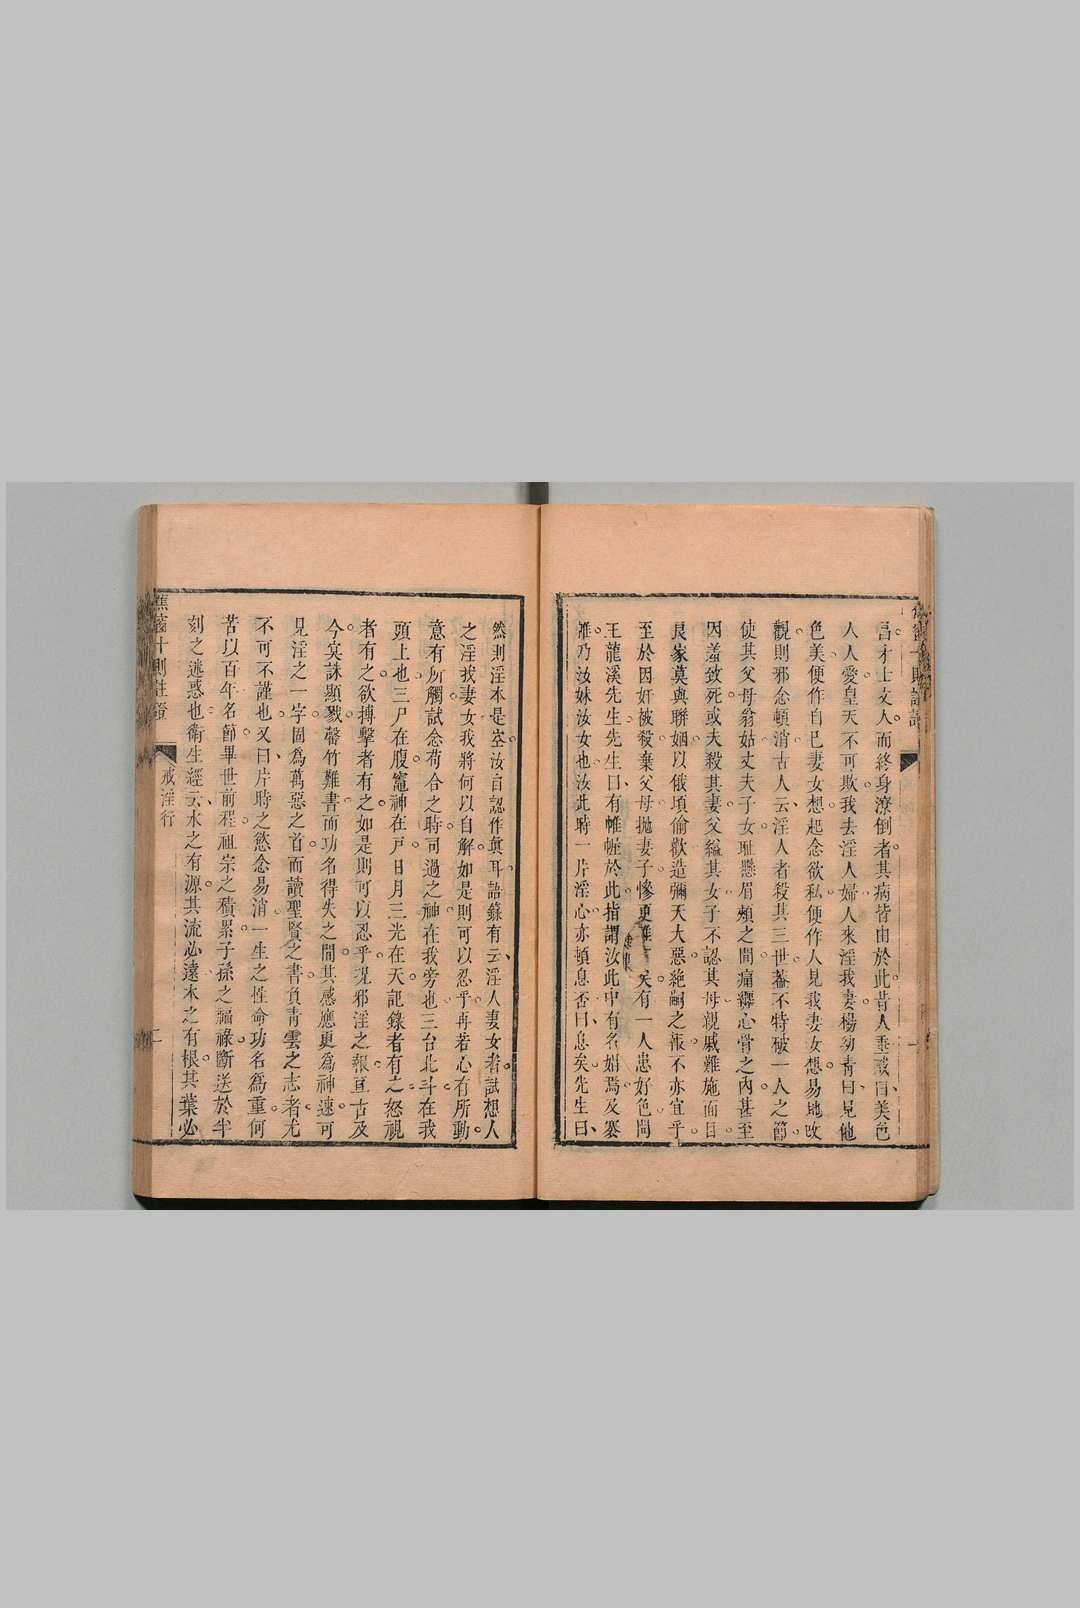 昌才士文人而終身潦倒者其病皆由於此昔人垂戒曰美色
人人愛皇天不可欺我去淫人婦人來淫我妻楊幼青曰見他
色美便作自己妻女想起念欲私便作人見我妻女想易地改
觀則邪念頓消古人云淫人者殺其三世蓋不特破一人之節
使其父母翁姑丈夫子女恥懸眉頰之間痛纏心骨之內甚至
因羞致死或夫殺其妻父縊其女子不認其母親戚難施面目
良家莫與聯姻以俄頃偷歡造彌天大惡絕嗣之報不亦宜乎
至於因奸被殺棄父母拋妻子慘更難矣有一人患好色問
王龍溪先生先生曰有帷帳於此指謂汝此中有名娼焉及褰
帷乃汝妹汝女也汝此時一片淫心亦頓息否曰息矣先生曰
然則淫本是空汝自認作真耳語錄有云淫人妻女者試想人
之淫我妻女我將何以自解如是則可以忍乎再若心有所動
意有所觸試念苟合之時司過之神在我旁也三台北斗在我
頭上也三尸在腹竈神在戸日月三光在天記錄者有之怒視
者有之欲搏擊者有之如是則可以忍乎況邪淫之報亘古及
今冥誅顯戮罄竹難書而功名得失之間其感應更為神速可
見淫之一字固為萬惡之首而讀聖賢之書負青雲之志者尤
不可不謹也又曰片時之慾念易消一生之性命功名為重何
苦以百年名節畢世前程祖宗之積累子孫之福祿斷送於半
刻之迷惑也衛生經云水之有源其流必遠木之有根其葉必
蕉窗十則註證
戒淫行
二